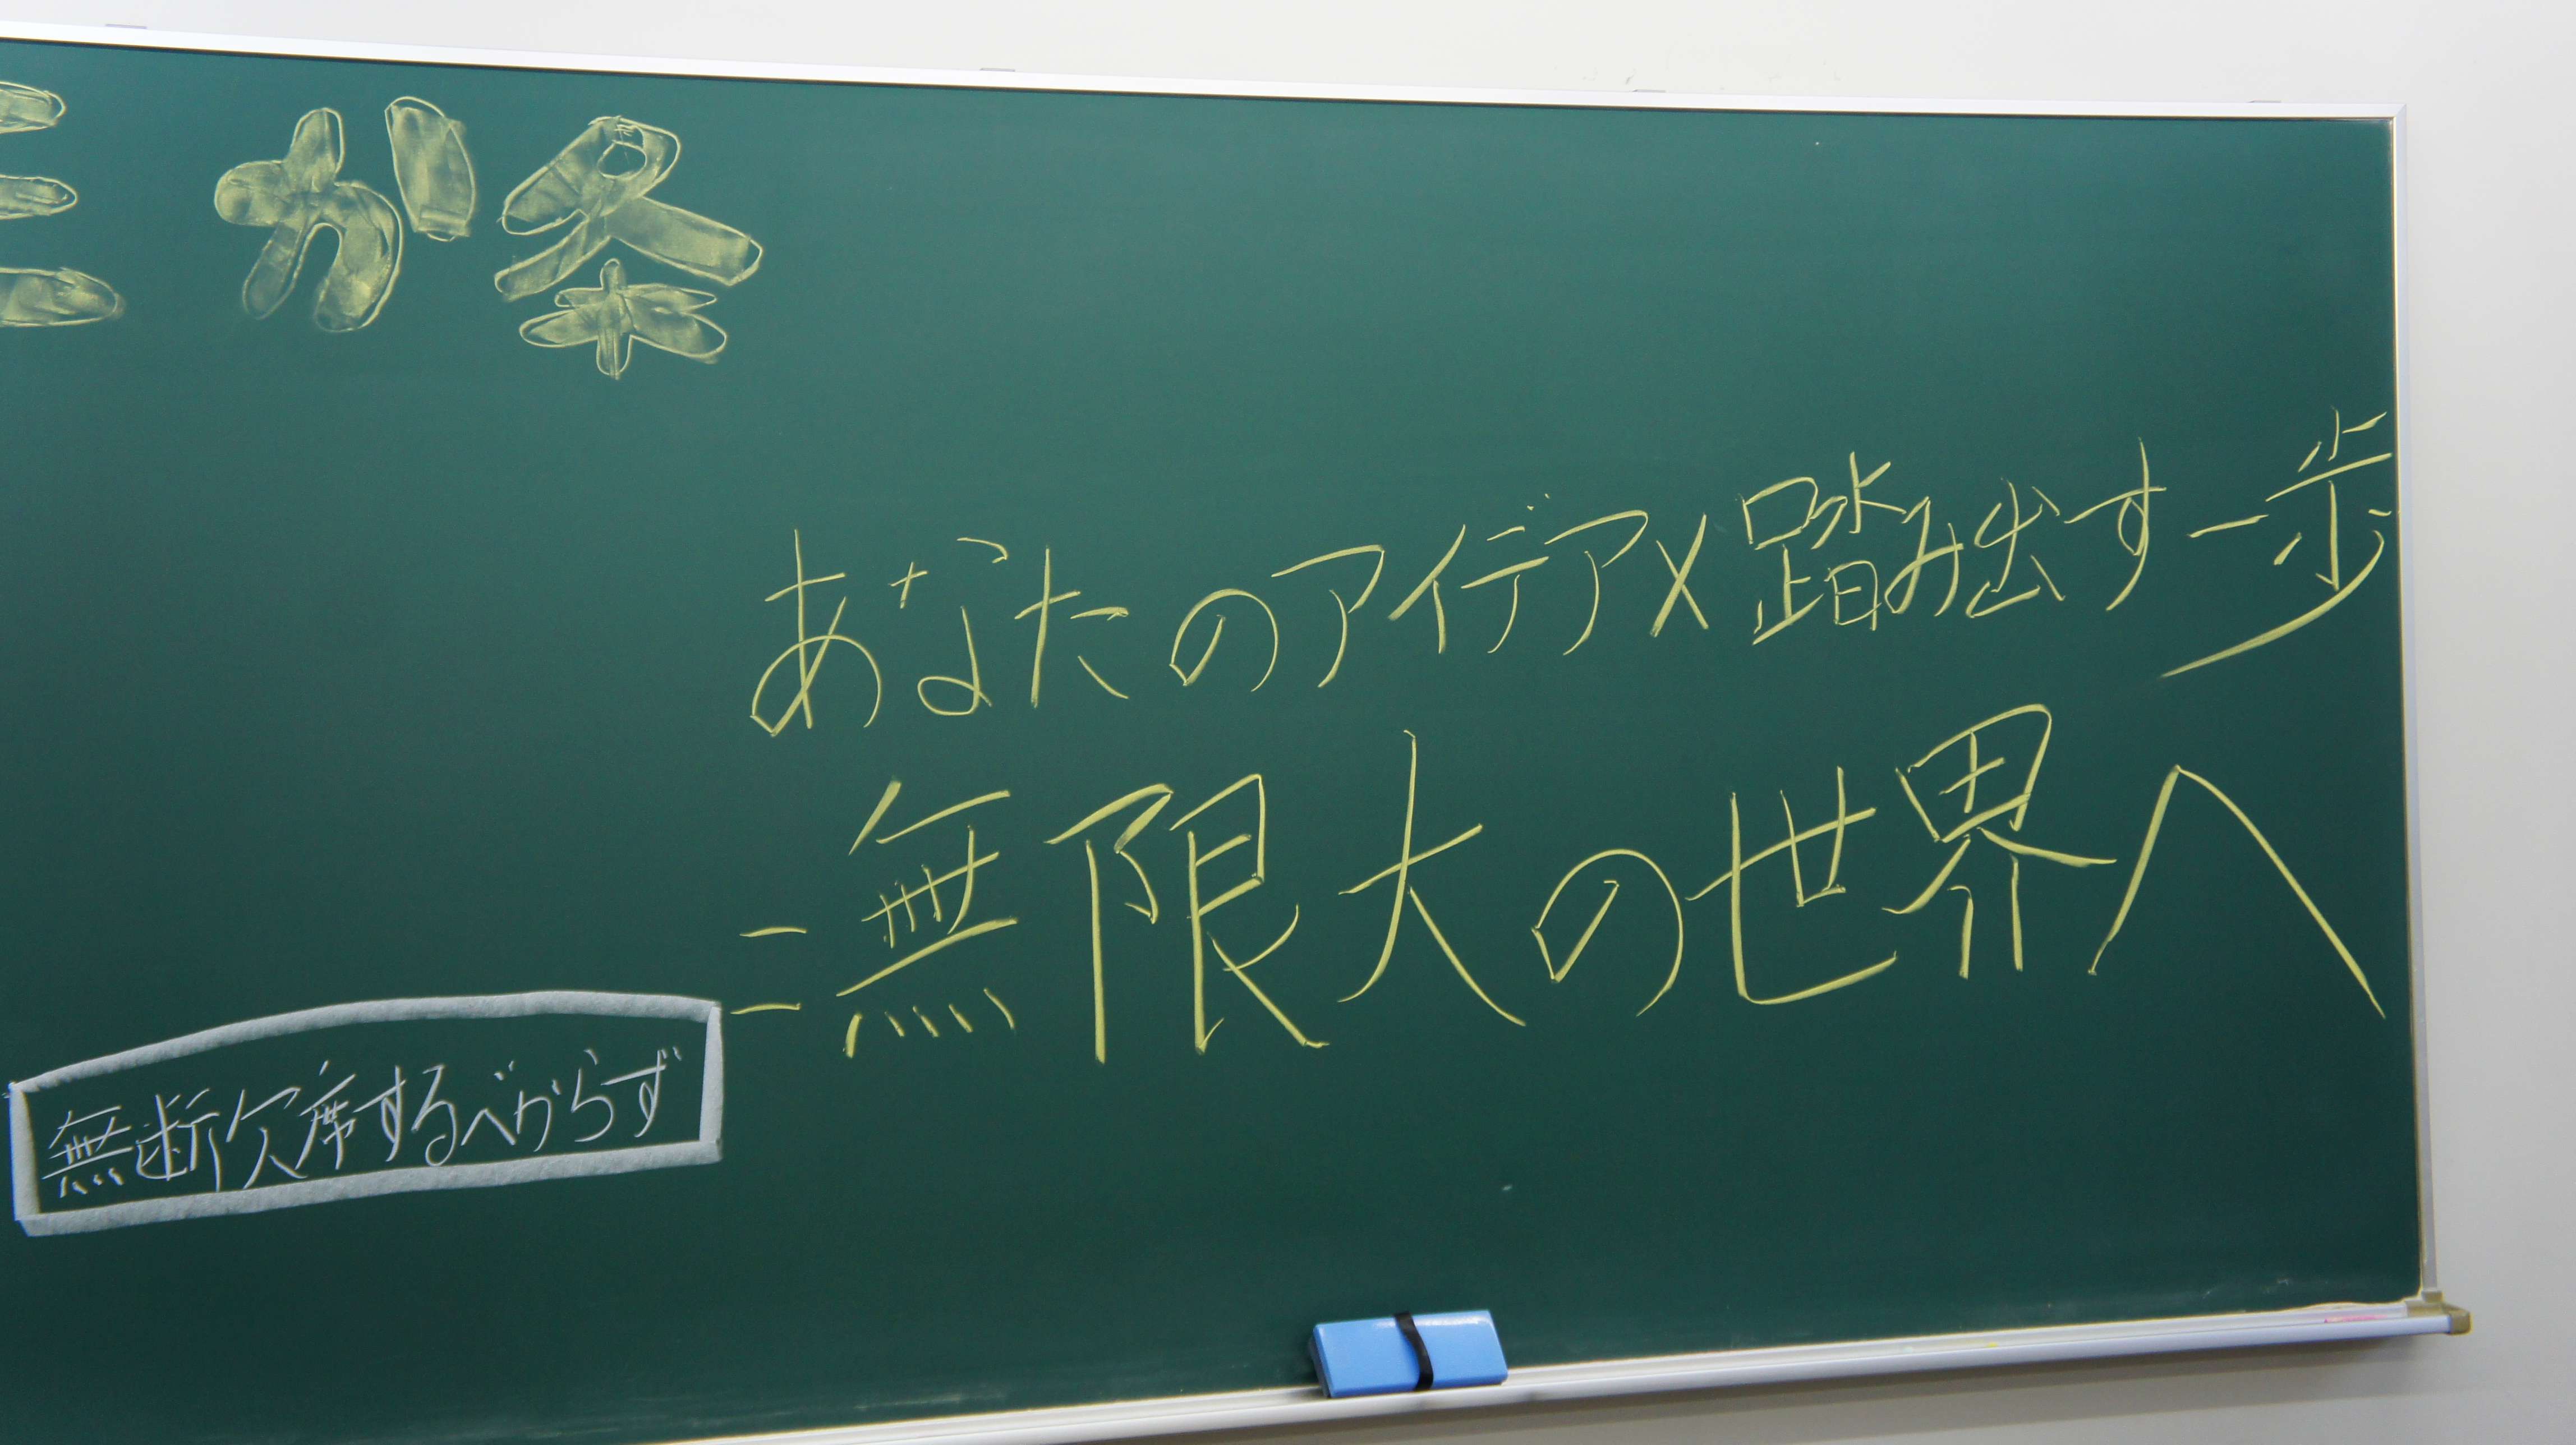 か条
あなたのアイデア×踏み出す一歩
=無限大の世界へ
無断欠席するべからず